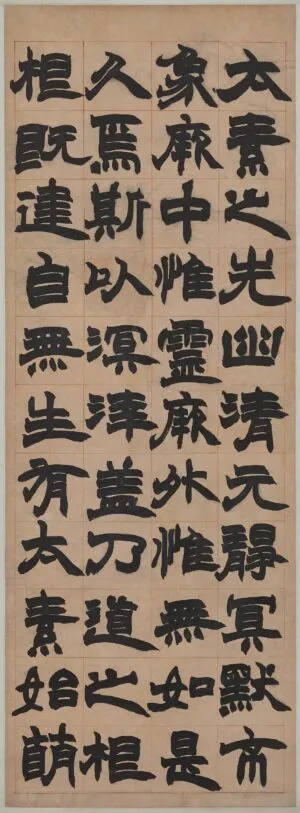 太素之先幽清元靜冥默
象厥中惟靈厥外惟無如是
久焉斯以溟涬盖乃道之根
根既建自無生有太素始萌